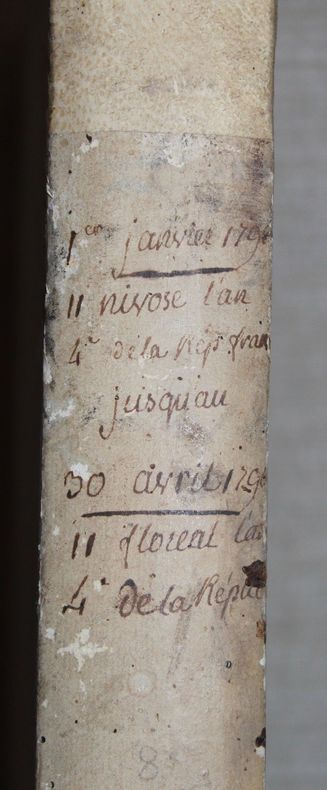 1er janvier 179
11 nivose l'an
4e de la Rép. fran
jusqu'au
30 avril 179
11 floreal l'an
4e de la Répu
8